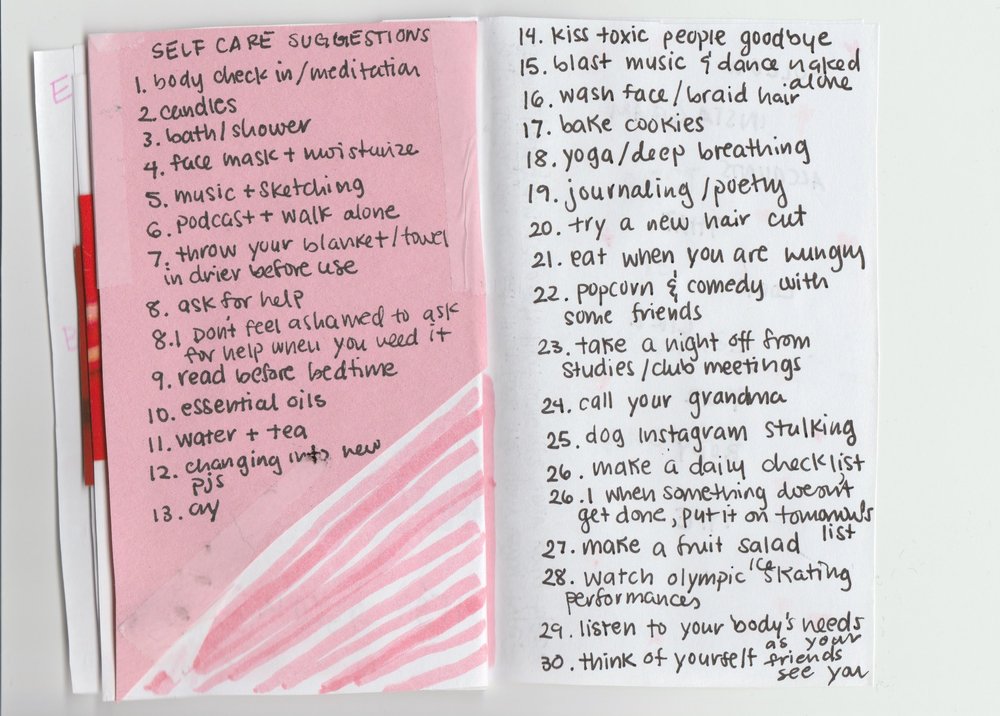 SELF CARE SUGGESTIONS
1. body check in/meditation
2. candles
3. bath/shower
4. face mask + moisturize
5. music + sketching
6. podcast + walk alone
7. throw your blanket/towel
in drier before use
8. ask for help
8.1 Don't feel ashamed to ask
for help when you need it
9. read before bedtime
10. essential oils
11. water + tea
12. changing into new
pjs
13. cry
14. kiss toxic people goodbye
15. blast music & dance naked
alone
16. wash face/braid hair
17. bake cookies
18. yoga/deep breathing
19. journaling/poetry
20. try a new hair cut
21. eat when you are hungry
22. popcorn & comedy with
some friends
23. take a night off from
studies/club meetings
24. call your grandma
25. dog instagram stulking
26. make a daily checklist
26.1 when something doesn't
get done, put it on tomorrow's
list
27. make a fruit salad
28. watch olympic ice skating
performances
29. listen to your body's needs
30. think of yourself as your
friends
see you